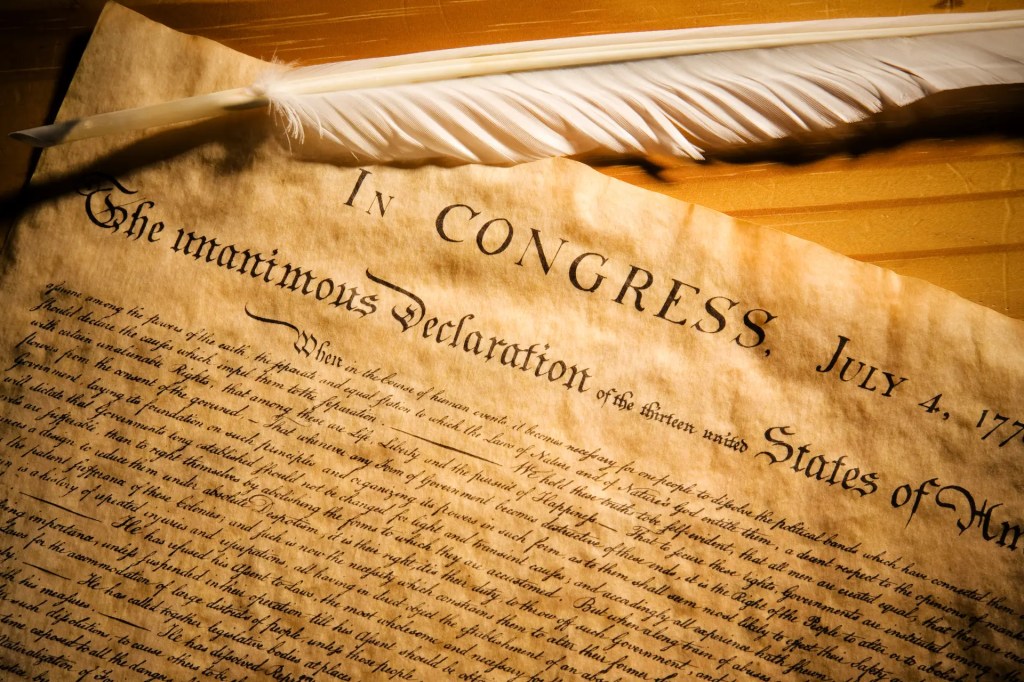 In CONGRESS, July 4, 177
The unanimous Declaration of the thirteen united States of Am
When in the Course of human events it becomes necessary for one people to dissolve the political bands which have connected them
assume among the powers of the earth, the separate and equal station to which the Laws of Nature and of Nature's God entitle them, a decent respect to the opinions of
should declare the causes which impel them to the separation. We hold these truths to be self-evident, that all men are created equal, that they are
with certain unalienable Rights, that among these are Life, Liberty and the pursuit of Happiness. — That to secure these rights, Governments are instituted among
powers from the consent of the governed, — That whenever any Form of Government becomes destructive of these ends, it is the Right of the People to alter or to abolish
Government, laying its foundation on such principles and organizing its powers in such form, as to them shall seem most likely to effect their Safety
will dictate that Governments long established should not be changed for light and transient causes; and accordingly all experience hath shewn,
are sufferable, than to right themselves by abolishing the forms to which they are accustomed. But when a long train of abuses
a design to reduce them under absolute Despotism, it is their right, it is their duty, to throw off such Government, and
the patient sufferance of these Colonies; and such is now the necessity which constrains them to alter their former
is a history of repeated injuries and usurpations, all having in direct object the establishment of
He has refused his Assent to Laws, the most wholesome and necessary
importance, unless suspended in their operation till his Assent should be
for the accommodation of large districts of people, unless those people
He has called together legislative bodies at places
his measures. He has dissolved
such dissolutions, to cause others
exposed to all the